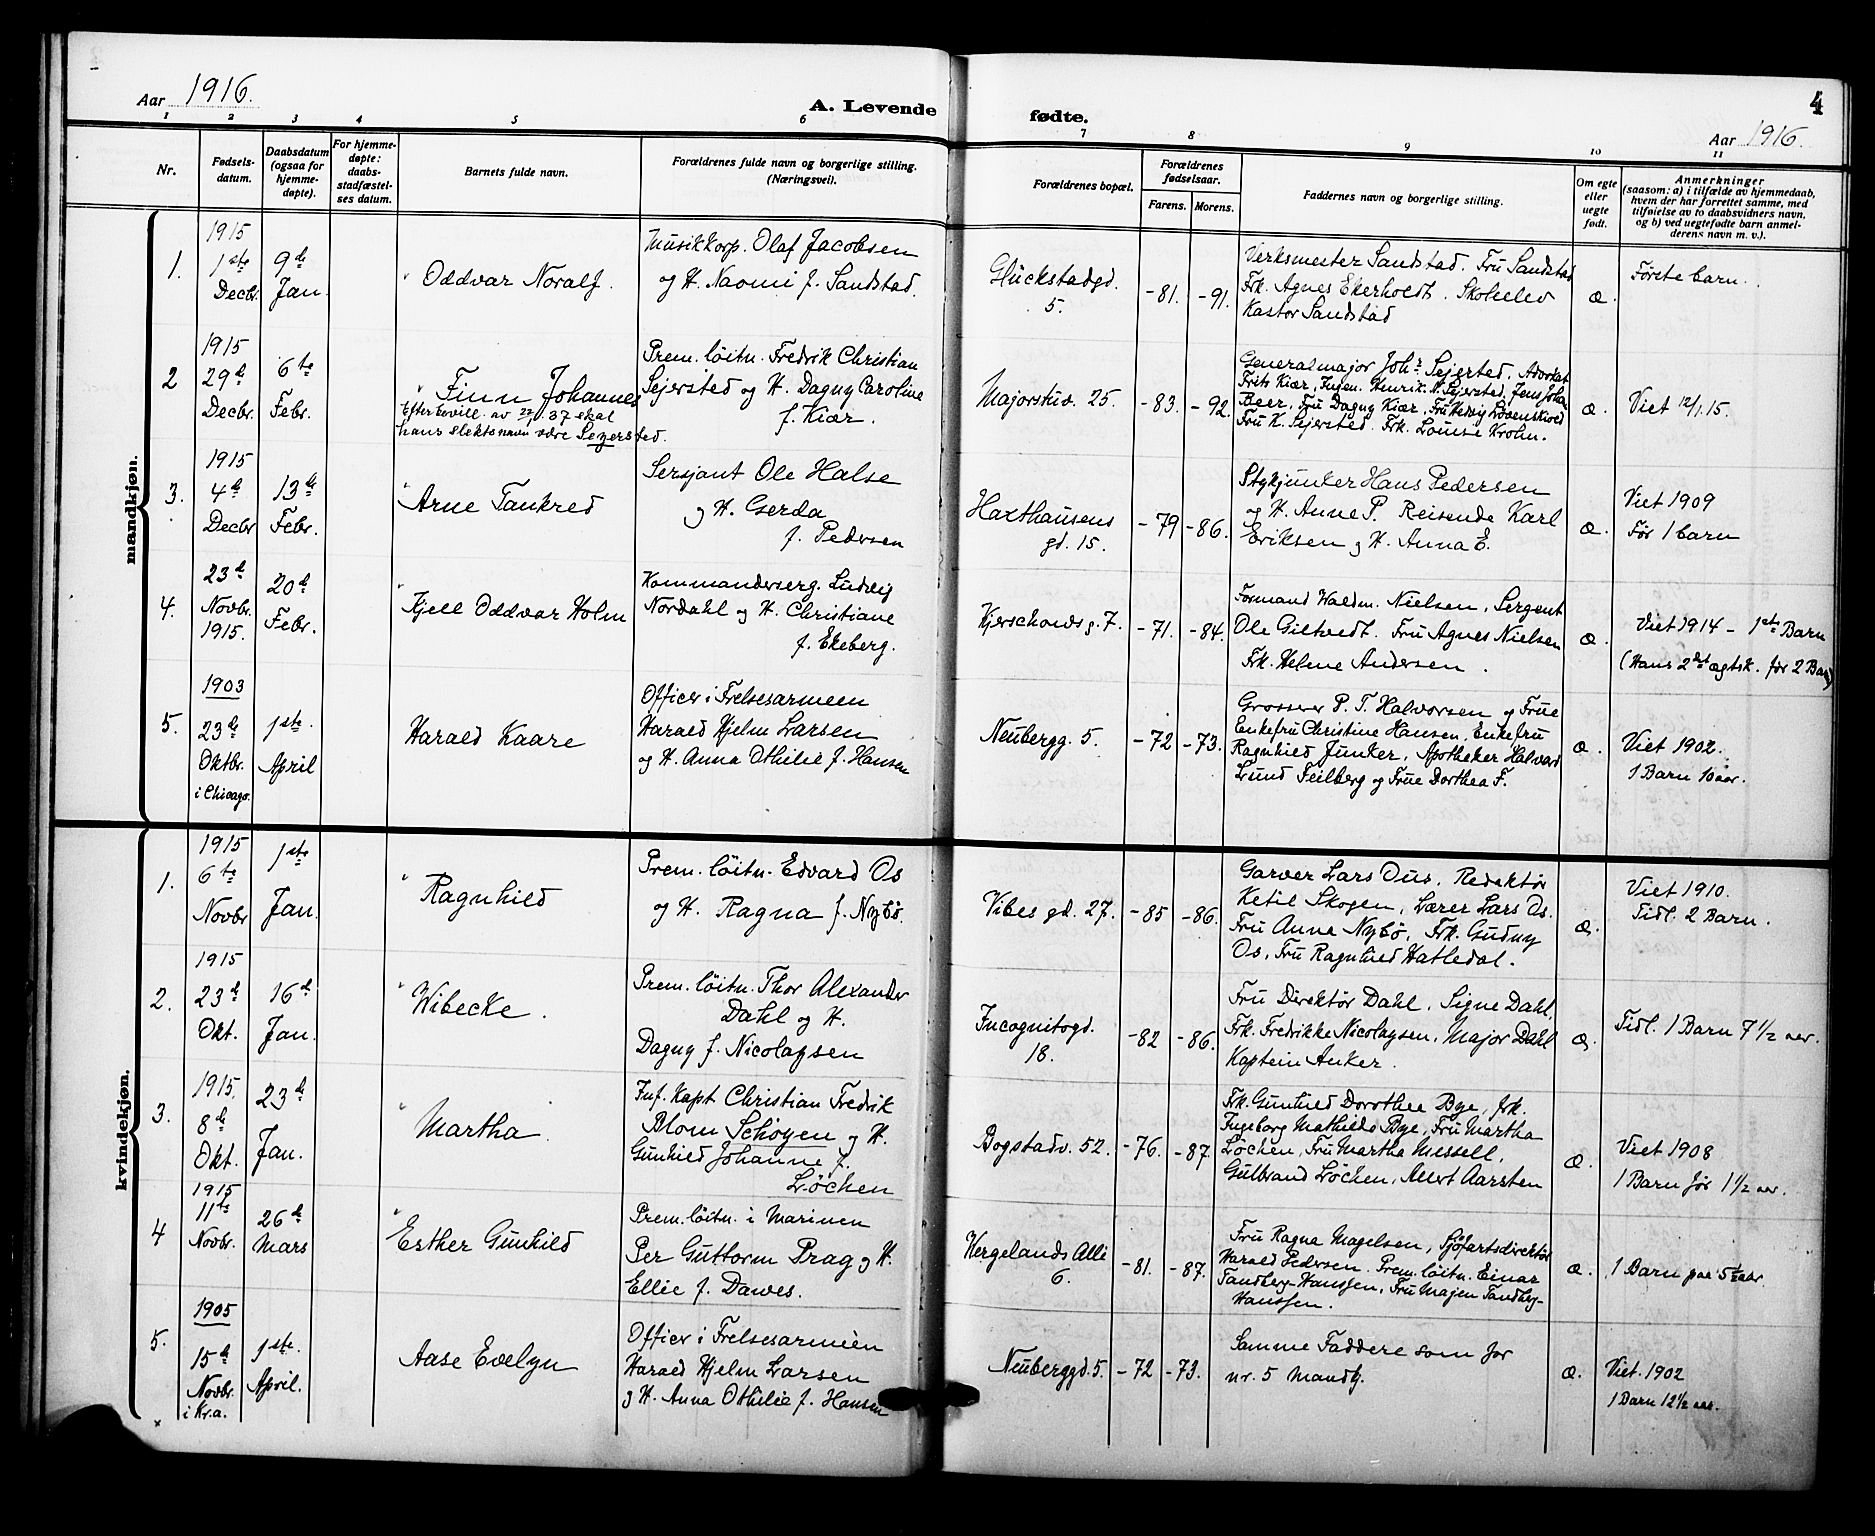 Aar 1916.
A. Levende
fødte.
4
Aar 1916.
1 2 3 4 5 6 7 8 9 10 11
Nr.
Fødsels-
datum.
Daabsdatum
(ogsaa for
hjemme-
døpte).
For hjemme-
døpte:
daabs-
stadfæstel-
ses datum.
Barnets fulde navn.
Forældrenes fulde navn og borgerlige stilling.
(Næringsvei).
Forældrenes bopæl.
Forældrenes
fødselsaar.
Farens. Morens.
Faddernes navn og borgerlige stilling.
Om egte
eller
uegte
født.
Anmerkninger
(saasom: a) i tilfælde av hjemmedaab,
hvem der har forrettet samme, med
tilføielse av to daabsvidners navn,
og b) ved uegtefødte barn anmel-
derens navn m. v.).
mandkjøn.
1.
1915
1ste
Decbr.
9de
Jan.
Oddvar Noralf.
Musikkorp. Olaf Jacobsen
og H. Naomi f. Sandstad.
Glückstadgd.
5.
-81.
-91.
Verksmester Sandstad. Fru Sandstad
Frk. Agnes Ekerholdt. Skoleelev
Kastor Sandstad
æ.
Første barn.
2
1915
29de
Decbr.
6te
Febr.
Finn Johannes
Efter bevill. av 22/1.37 skal
hans slektsnavn være Sejersted.
Prem. løitn. Fredrik Christian
Sejersted og H. Dagny Caroline
f. Kiær.
Majorstuv. 25.
-83.
-92.
Generalmajor Johs. Sejersted, Advokat
Frits Kiær, Ingen. Henrik. Sejersted, Jens Johan
Beer, Fru Dagny Kiær, Fru Hedvig Løvenskiold
Fru K. Sejersted. Frk. Louise Krohn.
æ.
Viet 12/1.15.
3.
1915
4de
Decbr
13de
Febr.
Arne Tankred
Sersjant Ole Halse
og H. Gerda
f. Pedersen
Haxthausens
gd. 15.
-79
-86.
Stykjunker Hans Pedersen
og H. Anne P. Reisende Karl
Eriksen og H. Anna E.
æ.
Viet 1909
Før 1 barn
4.
23de
Novbr.
1915.
20de
Febr.
Kjell Oddvar Holm
Kommanderserg. Ludvig
Nordahl og H. Christiane
f. Ekeberg.
Kjerschowsg. 7.
-71.
-84.
Formand Waldm. Nielsen, Sergent
Ole Giltvedt. Fru Agnes Nielsen
Frk. Helene Andersen.
æ.
Viet 1914 - 1ste Barn
(Hans 2det ægtsk. før 2 Barn)
5.
1903
23de
Oktbr.
i Chicago.
1ste
April
Harald Kaare
Officer i Frelsesarmeen
Harald Hjelm Larsen
og H. Anna Othilie f. Hansen
Neubergg. 5.
-72
-73.
Grosserer P. T. Halvorsen og Frue
Enkefru Christine Hansen, Enkefru
Ragnhild Junker, Apotheker Halvard
Lund Feilberg og Frue Dorthea F.
æ.
Viet 1902.
1 Barn 10 aar.
kvindekjøn.
1.
1915
6te
Novbr
1ste
Jan.
Ragnhild
Prem. løitn. Edvard Os
og H. Ragna f. Nybø.
Vibes gd. 27.
-85
-86.
Garver Lars Ous. Redaktør
Ketil Skogen, Lærer Lars Os.
Fru Anna Nybø. Frk. Gudny
Os, Fru Ragnhild Hatledal.
æ.
Viet 1910.
Tidl. 2 Barn.
2.
1915
23de
Okt.
16de
Jan.
Wibecke.
Prem. løitn. Thor Alexander
Dahl og H.
Dagny f. Nicolaysen
Incognitogd.
18.
-82
-86.
Fru Direktør Dahl, Signe Dahl,
Frk. Fredrikke Nicolaysen, Major Dahl
Kaptein Anker.
æ.
Tidl. 1 Barn 7 1/2 aar.
3.
1915.
8de
Okt.
23de
Jan.
Martha.
Inf. Kapt Christian Fredrik
Blom Schøyen og H.
Gunhild Johanne f.
Løchen
Bogstadv. 52.
-76.
-87.
Frk. Gunhild Dorothea Bye, frk.
Ingeborg Mathilde Bye, Fru Martha
Løchen, Fru Martha Messell,
Gulbrand Løchen, Allert Aarsten
æ.
Viet 1908
1 Barn før 1 1/2 aar.
4
1915
11te
Novbr.
26de
Mars
Esther Gunhild
Prem. løitn. i Marinen
Per Guttorm Prag og H.
Ellie f. Dawes.
Wergelands Allé
6.
-81.
-87.
Fru Ragna Magelsen, Sjøfartsdirektør
Harald Pedersen. Prem. løitn. Einar
Tandberg-Hanssen, Fru Majen Tandberg-
Hanssen.
æ.
1 Barn paa 5 1/2 aar.
5.
1905
15de
Novbr.
i Kr.a.
1ste
April.
Aase Evelyn
Officer i Frelsesarmeen
Harald Hjelm Larsen
og H. Anna Othilie f. Hansen
Neuberggd. 5.
-72
-73.
Samme Faddere som for
nr. 5 mandkj.
æ.
Viet. 1902
1 Barn 12 1/2 aar.